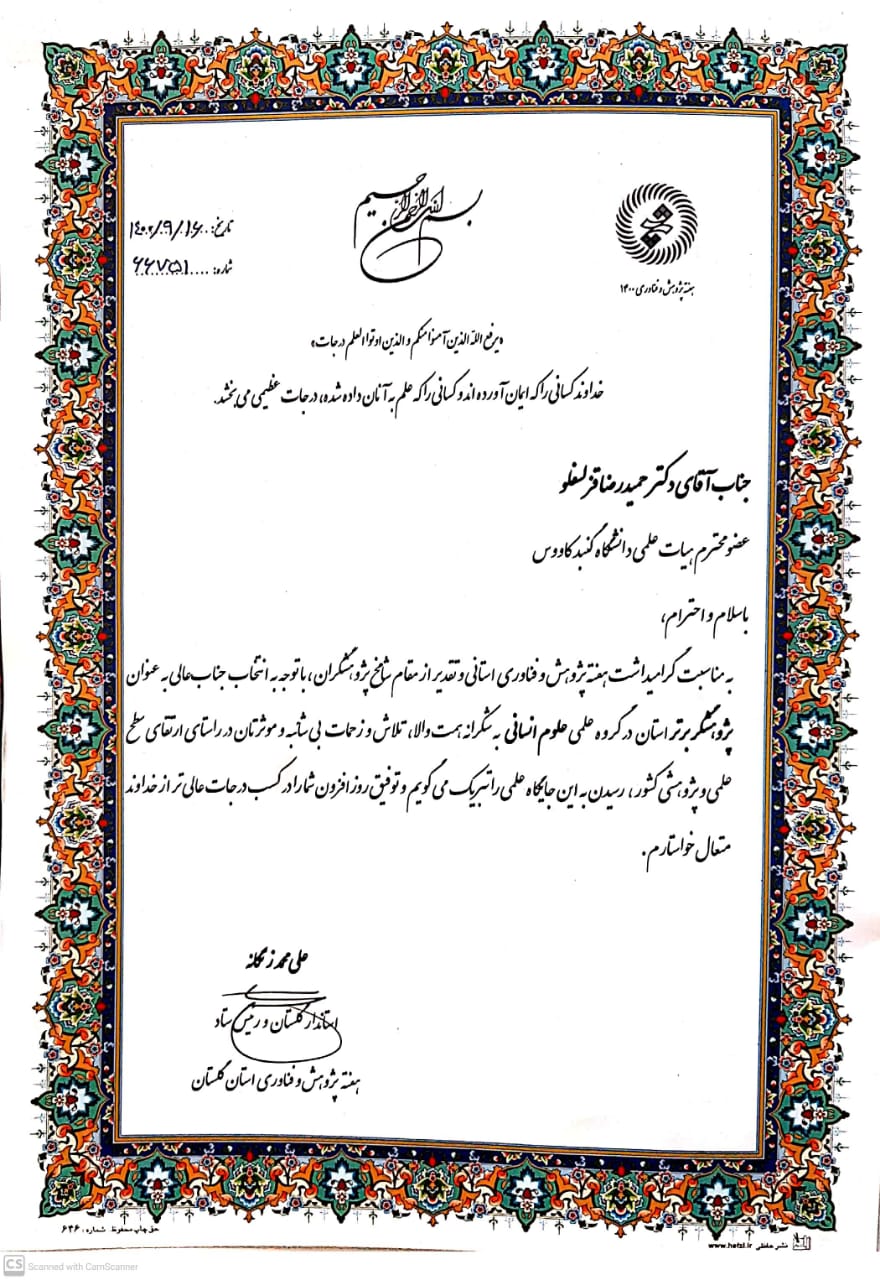 بسم الله الرحمن الرحیم
هفته پژوهش و فناوری ۱۴۰۰
تاریخ: ۱۴۰۲/۰۹/۱۶
شماره: ۶۶۷۵۱
«یرفع الله الذین آمنوا منکم و الذین اوتوا العلم درجات»
خداوند کسانی را که ایمان آورده اند و کسانی را که علم به آنان داده شده، درجات عظیمی می بخشد.
جناب آقای دکتر حمیدرضا قزلسفلو
عضو محترم هیات علمی دانشگاه گنبد کاووس
با سلام و احترام،
به مناسبت گرامیداشت هفته پژوهش و فناوری استانی و تقدیر از مقام شامخ پژوهشگران، با توجه به انتخاب جناب عالی به عنوان
پژوهشگر برتر استان در گروه علمی علوم انسانی به شکرانه همت والا، تلاش و زحمات بی شائبه و موثرتان در راستای ارتقای سطح
علمی و پژوهشی کشور، رسیدن به این جایگاه علمی را تبریک می گویم و توفیق روز افزون شما را در کسب درجات عالی تر از خداوند
متعال خواستارم.
علی محمد زنگانه
استاندار گلستان و رئیس ستاد
هفته پژوهش و فناوری استان گلستان
حق چاپ محفوظ شماره: ۶۴۶
نشر حافظی www.hefzi.ir
CS Scanned with CamScanner